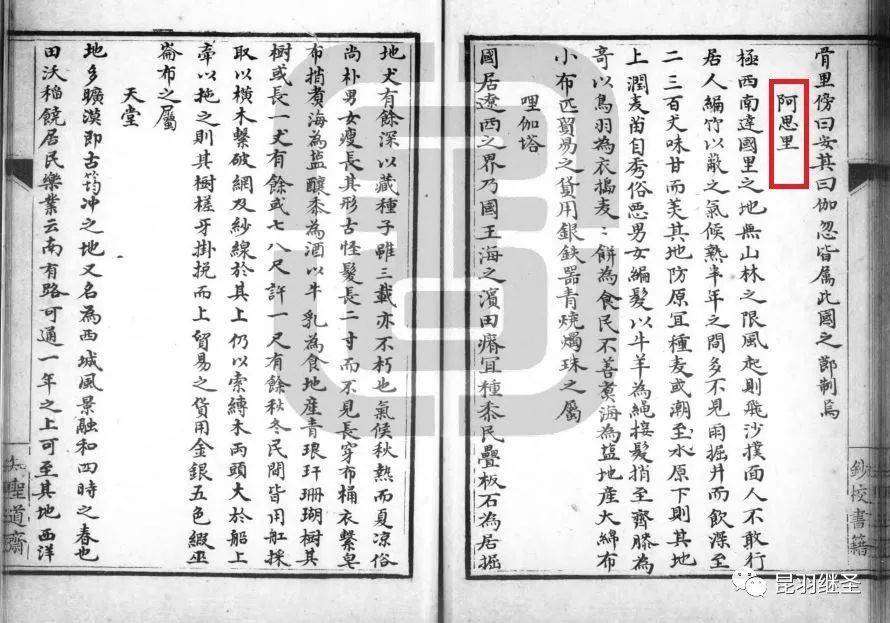 骨里傍曰安其曰伽忽皆属此國之節制焉
阿思里
極西南達國里之地無山林之限風起則飛沙撲面人不敢行
居人編竹以蔽之氣候熱半年之間多不見雨掘井而飲深至
二三百丈味甘而美其地防原宜種麦或潮至水原下則其地
上潤麦苗自秀俗悪男女編髮以牛羊為繩接髮捎至齊膝為
奇以鳥羽為衣搗麦:餅為食民不善煑海為盐地産大綿布
小布匹貿易之貨用銀鉄器青燒燭珠之属
哩伽塔
國居遼西之界乃國王海之濱田瘠宜種黍民疊板石為居掘
地丈有餘深以藏種子雖三載亦不朽也氣候秋熱而夏凉俗
尚朴男女瘦長其形古怪髮長二寸而不見長穿布桶衣繫皂
布捎煑海為盐釀黍為酒以牛乳為食地産青琅玕珊瑚樹其
樹或長一丈有餘或七八尺許一尺有餘秋冬民間皆用舡採
取以横木繫破網及紗線於其上仍以索縛木両頭大於船上
牽以拖之則其樹槎牙掛挽而上貿易之貨用金銀五色緞巫
崙布之属
天堂
地多曠漠即古筠冲之地又名為西城風景融和四時之春也
田沃稲饒居民樂業云南有路可通一年之上可至其地西洋
鈔校書籍
知聖道齋
昆羽继圣